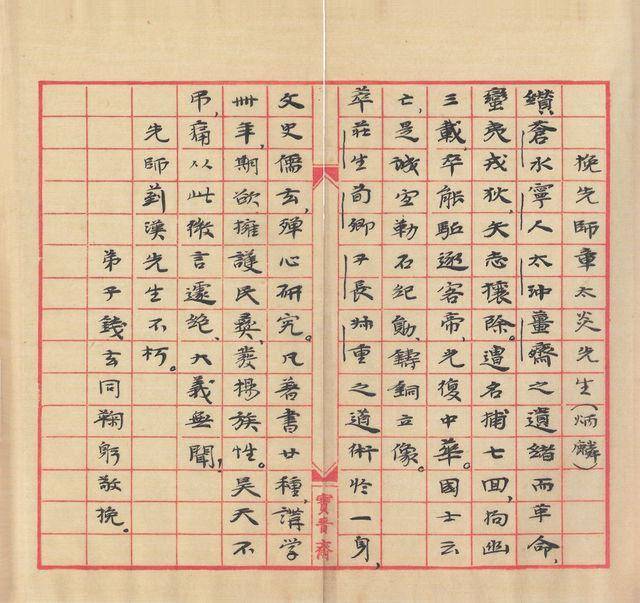 挽先師章太炎先生(炳麟)
纘蒼水寧人太沖薑齋之遺緒而革命,
蠻夷戎狄,矢志攘除。遭名捕七回,拘幽
三載,卒能驅逐客帝,光復中華。國士云
亡,是誠宜勒石紀勛,鑄銅立像。
萃莊生荀卿子長叔重之道術於一身,
寶齋
文史儒玄,殫心研究。凡著書廿種,講学
卌年,期欲擁護民彝,發揚族性。昊天不
弔,痛从此微言遽絕,大義無聞,
先師菿漢先生不朽。
弟子錢玄同鞠躬敬挽。